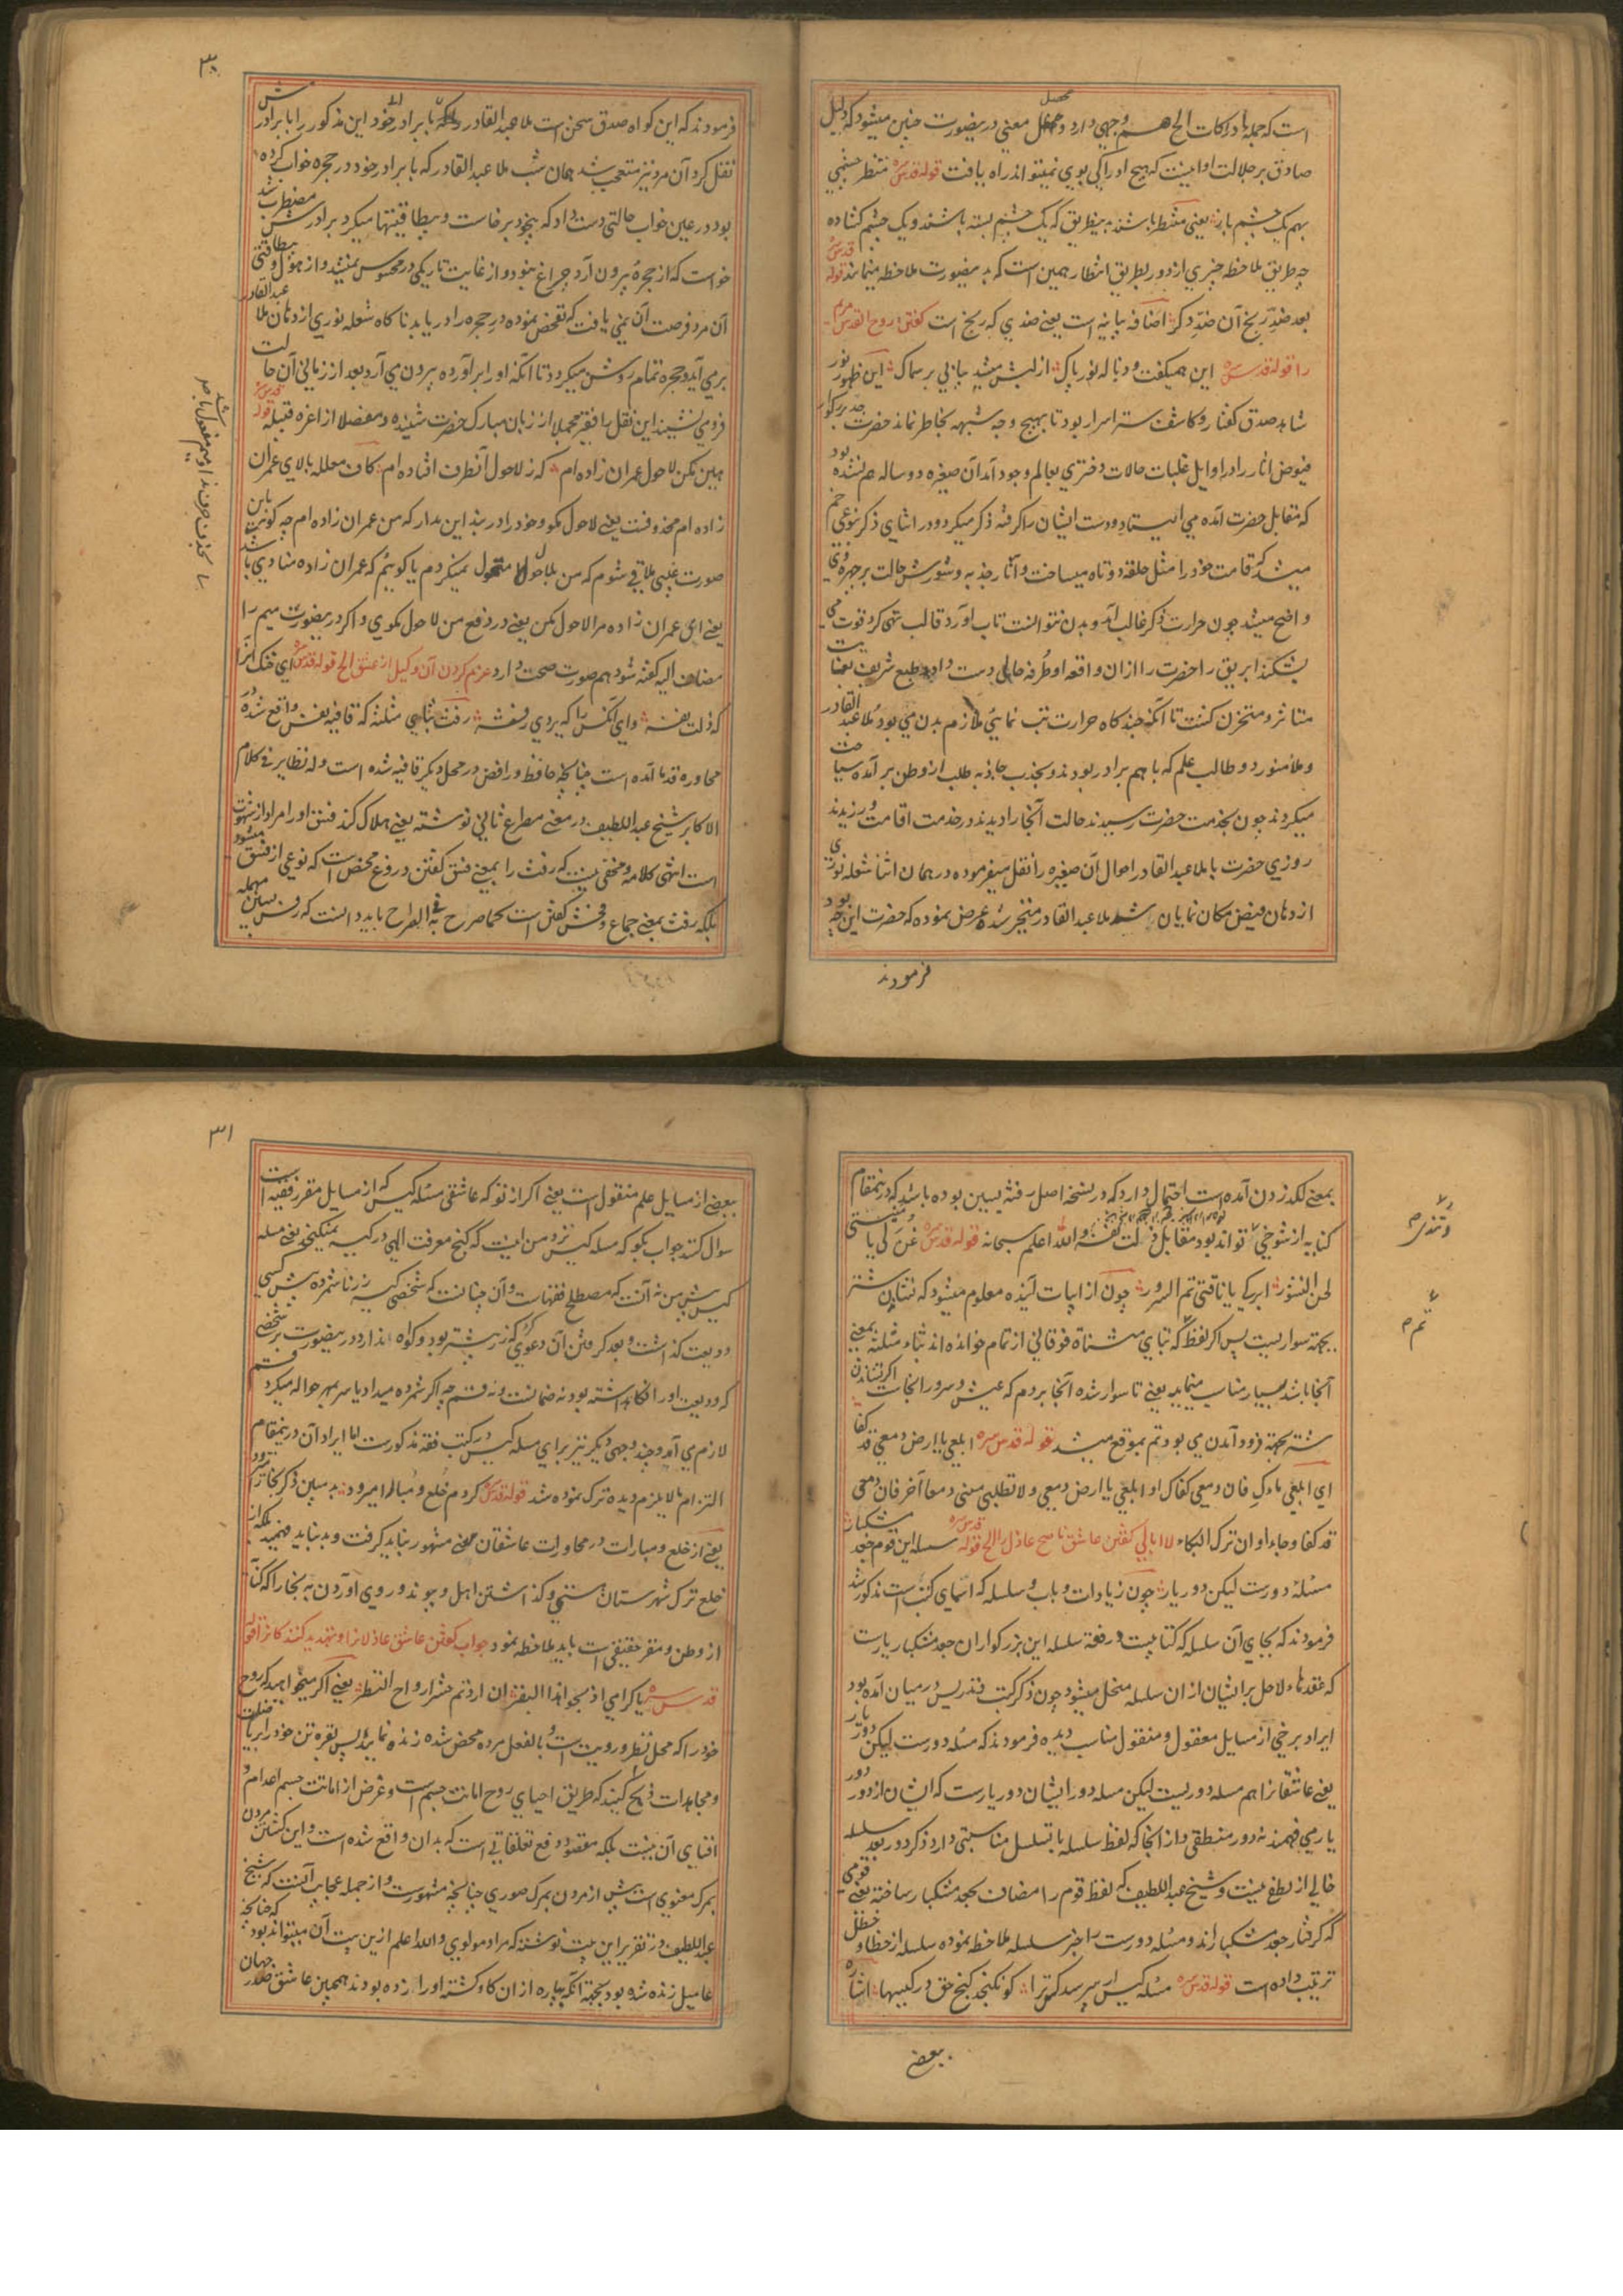 است که جمله ادراکات الخ هم وجهی دارد و محصل معنی درینصورت چنین میشود که دلیل
صادق بر جلالت او اینست که هیچ ادراکی بوی نمیتواند راه یافت قوله قدس سره منتظر چشمی
بهم یک چشم باز یعنی منتظر باشند بدینطریق که یک چشم بسته باشند و یک چشم کشاده
چه طریق ملاحظه چیزی از دور بطریق انتظار همین است که بدینصورت ملاحظه مینمایند قوله قدس سره
بعد ضدِ رنج آن ضدِ دکر اضافه بیانیه است یعنی ضدی که رنج است کفتن روح القدس مریم
را قوله قدس سره این همیکفت و ذباله نور پاک از لبش میشد پیاپی بر سماک این ظهور نور
شاهد صدق کفتار و کاشف ستر اسرار بود تا بهیچ وجه شبهه بخاطر نماند حضرت جد بزرکوار
فیوض اثار را در اوایل غلبات حالات دختری بعالم وجود آمد آن صغیره دو ساله هم نشده بود
که مقابل حضرت آمده می ایستاد و دست ایشان را کرفته ذکر میکرد و در اثنای ذکر بنوعی خم
میشد که قامت خود را مثل حلقه دوتاه میساخت و آثار جذبه و شورش حالت بر چهره وی
واضح میشد چون حرارت ذکر غالب آمد و بدن نتوانست تاب آورد قالب تهی کرد قوت می
بشکند ابریق را حضرت را ازان واقعه او طرفه حالی دست داد و طبع شریف بغایت
متاثر و متحزن کشت تا آنکه چند کاه حرارت تب نمائی ملازم بدن می بود ملا عبد القادر
و ملا منور دو طالب علم که باهم برادر بودند و بجذب جاذبه طلب از وطن بر آمده سیاحت
میکردند چون بخدمت حضرت رسیدند حالت آنجا را دیدند در خدمت اقامت ورزیدند
روزی حضرت با ملا عبد القادر احوال آن صغیره را نقل میفرموده در همان اثنا شعله نوری
از دهان فیض مکان نمایان شد ملا عبد القادر متحیر شده عرض نموده که حضرت این چه بود
فرمودند
۳۰
فرمودند که این کواه صدق سخن است ملا عبد القادر با برادر خود این مذکور را با برادرش
نقل کرد آن مرد نیز متعجب شد همان شب ملا عبد القادر که با برادر خود در حجره خواب کرده
بود در عین خواب حالتی دست داد که بیخود برخاست و بیطاقتیها میکرد برادرش مضطرب شد
خواست که از حجره بیرون آرد چراغ نبود و از غایت تاریکی در محسوس نمیشد و از هول و بیطاقتی
آن مرد فرصت آن نمی یافت که تفحص نموده در حجره را دریابد ناکاه شعله نوری از دهان ملا عبد القادر
بر می آید و حجره تمام روشن میکردد تا آنکه او را برآورده بیرون می آرد بعد از زمانی آن حالت
فرو می نشیند این نقل را فقیر مجملا از زبان مبارک حضرت شنیده و مفصلا از اعزه قبیله قوله قدس سره
هین مکن لاحول عمران زاده ام که ز لاحول آنطرف افتاده ام کاف معلله بالای عمران
زاده ام محذوفست یعنی لاحول مکو و خود را در بند این بدار که من عمران زاده ام چه کونه باین
صورت غیبی ملاقی شوم که من بلاحول متحول نمیکردم یا کوئیم که عمران زاده منادی باشد
یعنی ای عمران زاده مرا لاحول مکن یعنی در دفع من لاحول مکوی و اکر درینصورت میم را
مضاف الیه کفته شود هم صورت صحت دارد عزم کردن آن وکیل از عشق الخ قوله قدس سره ای خنک آنرا
که ذلت نفسه وای آنکس را که یردی رفسه رفث بثای مثلثه که قافیه نفس واقع شده در
محاوره قدما آمده است چنانچه حافظ و رافض در محل دیکر قافیه شده است وله نظایر فی کلام
الاکابر شیخ عبد اللطیف در معنی مصرع ثانی نوشته یعنی هلاک کند فسق او را مراد از شهوت
است انتهی کلامه و مخفی نیست که رفث را بمعنی فسق کفتن دروغ محض است که نوعی از فسق میشود
بلکه رفث بمعنی جماع و فحش کفتن است کما صرح به فی الصراح باید دانست که رفس بسین مهمله
بحذف حرف ندا و میم مفعول باشد
بمعنی لکد زدن آمده است احتمال دارد که در نسخه اصل رفسه بسین بوده باشد که درینمقام
کنایه از شوخی تواند بود مقابل ذلت نفسه والله اعلم سبحانه قوله قدس سره غن لی یا منیتی
لحن النشور ابرکی یا ناقتی تم السرور چون از ابیات آینده معلوم میشود که نشاندن شتر
بجهة سواریست پس اکر لفظ که بتای مثناة فوقانی از تمام خوانده اند بثاء مثلثه بمعنی
آنجا باشد بسیار مناسب مینماید یعنی تا سوار شده آنجا بروم که عیش و سرور آنجاست اکر نشاندن
شتر بجهة فرود آمدن می بود تم بموقع میشد قوله قدس سره ابلعی یا ارض دمعی قد کفا
ای ابلعی ماءکِ فان دمعی کفاک او ابلعی یا ارض دمعی ولا تطلبی منی دمعا آخر فان دمعی
قد کفا وجاء اوان ترک البکاء لاابالی کفتن عاشق ناصح عاذل را الخ قوله قدس سره سلسله این قوم جعد مشکبار
مسئله دورست لیکن دور یار چون زیادات و باب و سلسله که اسمای کتب است مذکور شد
فرمودند که بجای آن سلسله که کتابیست در فقه سلسله این بزرکواران جعد مشکبار یارست
که عقدهاء لاحل بر ایشان ازان سلسله منحل میشود چون ذکر کتب و تدریس در میان آمده بود
ایراد برخی از مسایل معقول و منقول مناسب دیده فرمودند که مسئله دورست لیکن دور یار
یعنی عاشقانرا هم مسله دوریست لیکن مسله دور ایشان دور یارست که ایشان از دور دور
یار می فهمند نه دور منطقی و از آنجا که لفظ سلسله با تسلسل مناسبتی دارد ذکر دور بعد سلسله
خالی از لطف نیست و شیخ عبد اللطیف که لفظ قوم را مضاف بجعد مشکبار ساخته یعنی قومی
که کرفتار جعد مشکبار اند و مسئله دورست را خبر سلسله ملاحظه نموده سلسله از خطا و خطل
ترتیب داده است قوله قدس سره مسئله کیس ار بپرسد کس ترا کو نکنجد کنج حق در کیسها اشاره
بعضی
۳۱
ببعضی از مسایل علم منقول است یعنی اکر از تو که عاشقی مسئله کیس که از مسایل مقرر فقیه است
سوال کنند جواب بکو که مسله کیس نزد من اینست که کنج معرفت الهی در کیسه نمیکنجد یعنی مسله
کیس پیش من نه آنست که مصطلح فقهاست و آن چنانست که شخصی کیسه زر ناشمرده پیش کسی
ودیعت کذاشت و بعد کرفتن آن دعوی کرد که زر بیشتر بود و کواه ندارد درینصورت بر شخصی
که ودیعت او را نکاهداشته بود نه ضمانست و نه قسم چه اکر شمرده میداد یا سر بمهر حواله میکرد قسم
لازم می آمد و چند وجهی دیکر نیز برای مسله کیس در کتب فقه مذکورست اما ایراد آن درینمقام
التزام مالایلزم دیده ترک نموده شد قوله قدس سره کردم خلع و مبارا میرود بد مبین ذکر بخارا میرود
یعنی از خلع و مبارات در محاورات عاشقان معنی مشهور نباید کرفت و بد نباید فهمید بلکه از
خلع ترک شهرستان هستی و کذاشتن اهل و پیوند و روی آوردن به بخارا که کنایه
از وطن و مقر حقیقی است باید ملاحظه نمود جواب کفتن عاشق عاذلانرا و تهدید کنندکانرا قوله
قدس سره یا کرامی اذبحوا هذا البقر ان اردتم حشر ارواح النظر یعنی اکر میخواهید که روح
خود را که محل نظر و رویت است و بالفعل مرده محض شده زنده نمایید پس بقره تن خود را بریاضت
و مجاهدات ذبح کنید که طریق احیای روح اماتت جسم است و غرض از اماتت جسم اعدام و
افنای آن نیست بلکه مقصود رفع تعلقاتی است که بدان واقع شده است و این کشتن مردن
بمرک معنوی است پیش از مردن بمرک صوری چنانچه مشهورست و از جمله عجایب آنست که شیخ
عبد اللطیف در تقریر این بیت نوشته که مراد مولوی والله اعلم ازین بیت آن میتواند بود که چنانچه
عامیل زنده شده بود بجهة آنکه پاره ازان کاو کشته او را زده بودند همچنین عاشق صدر جهان